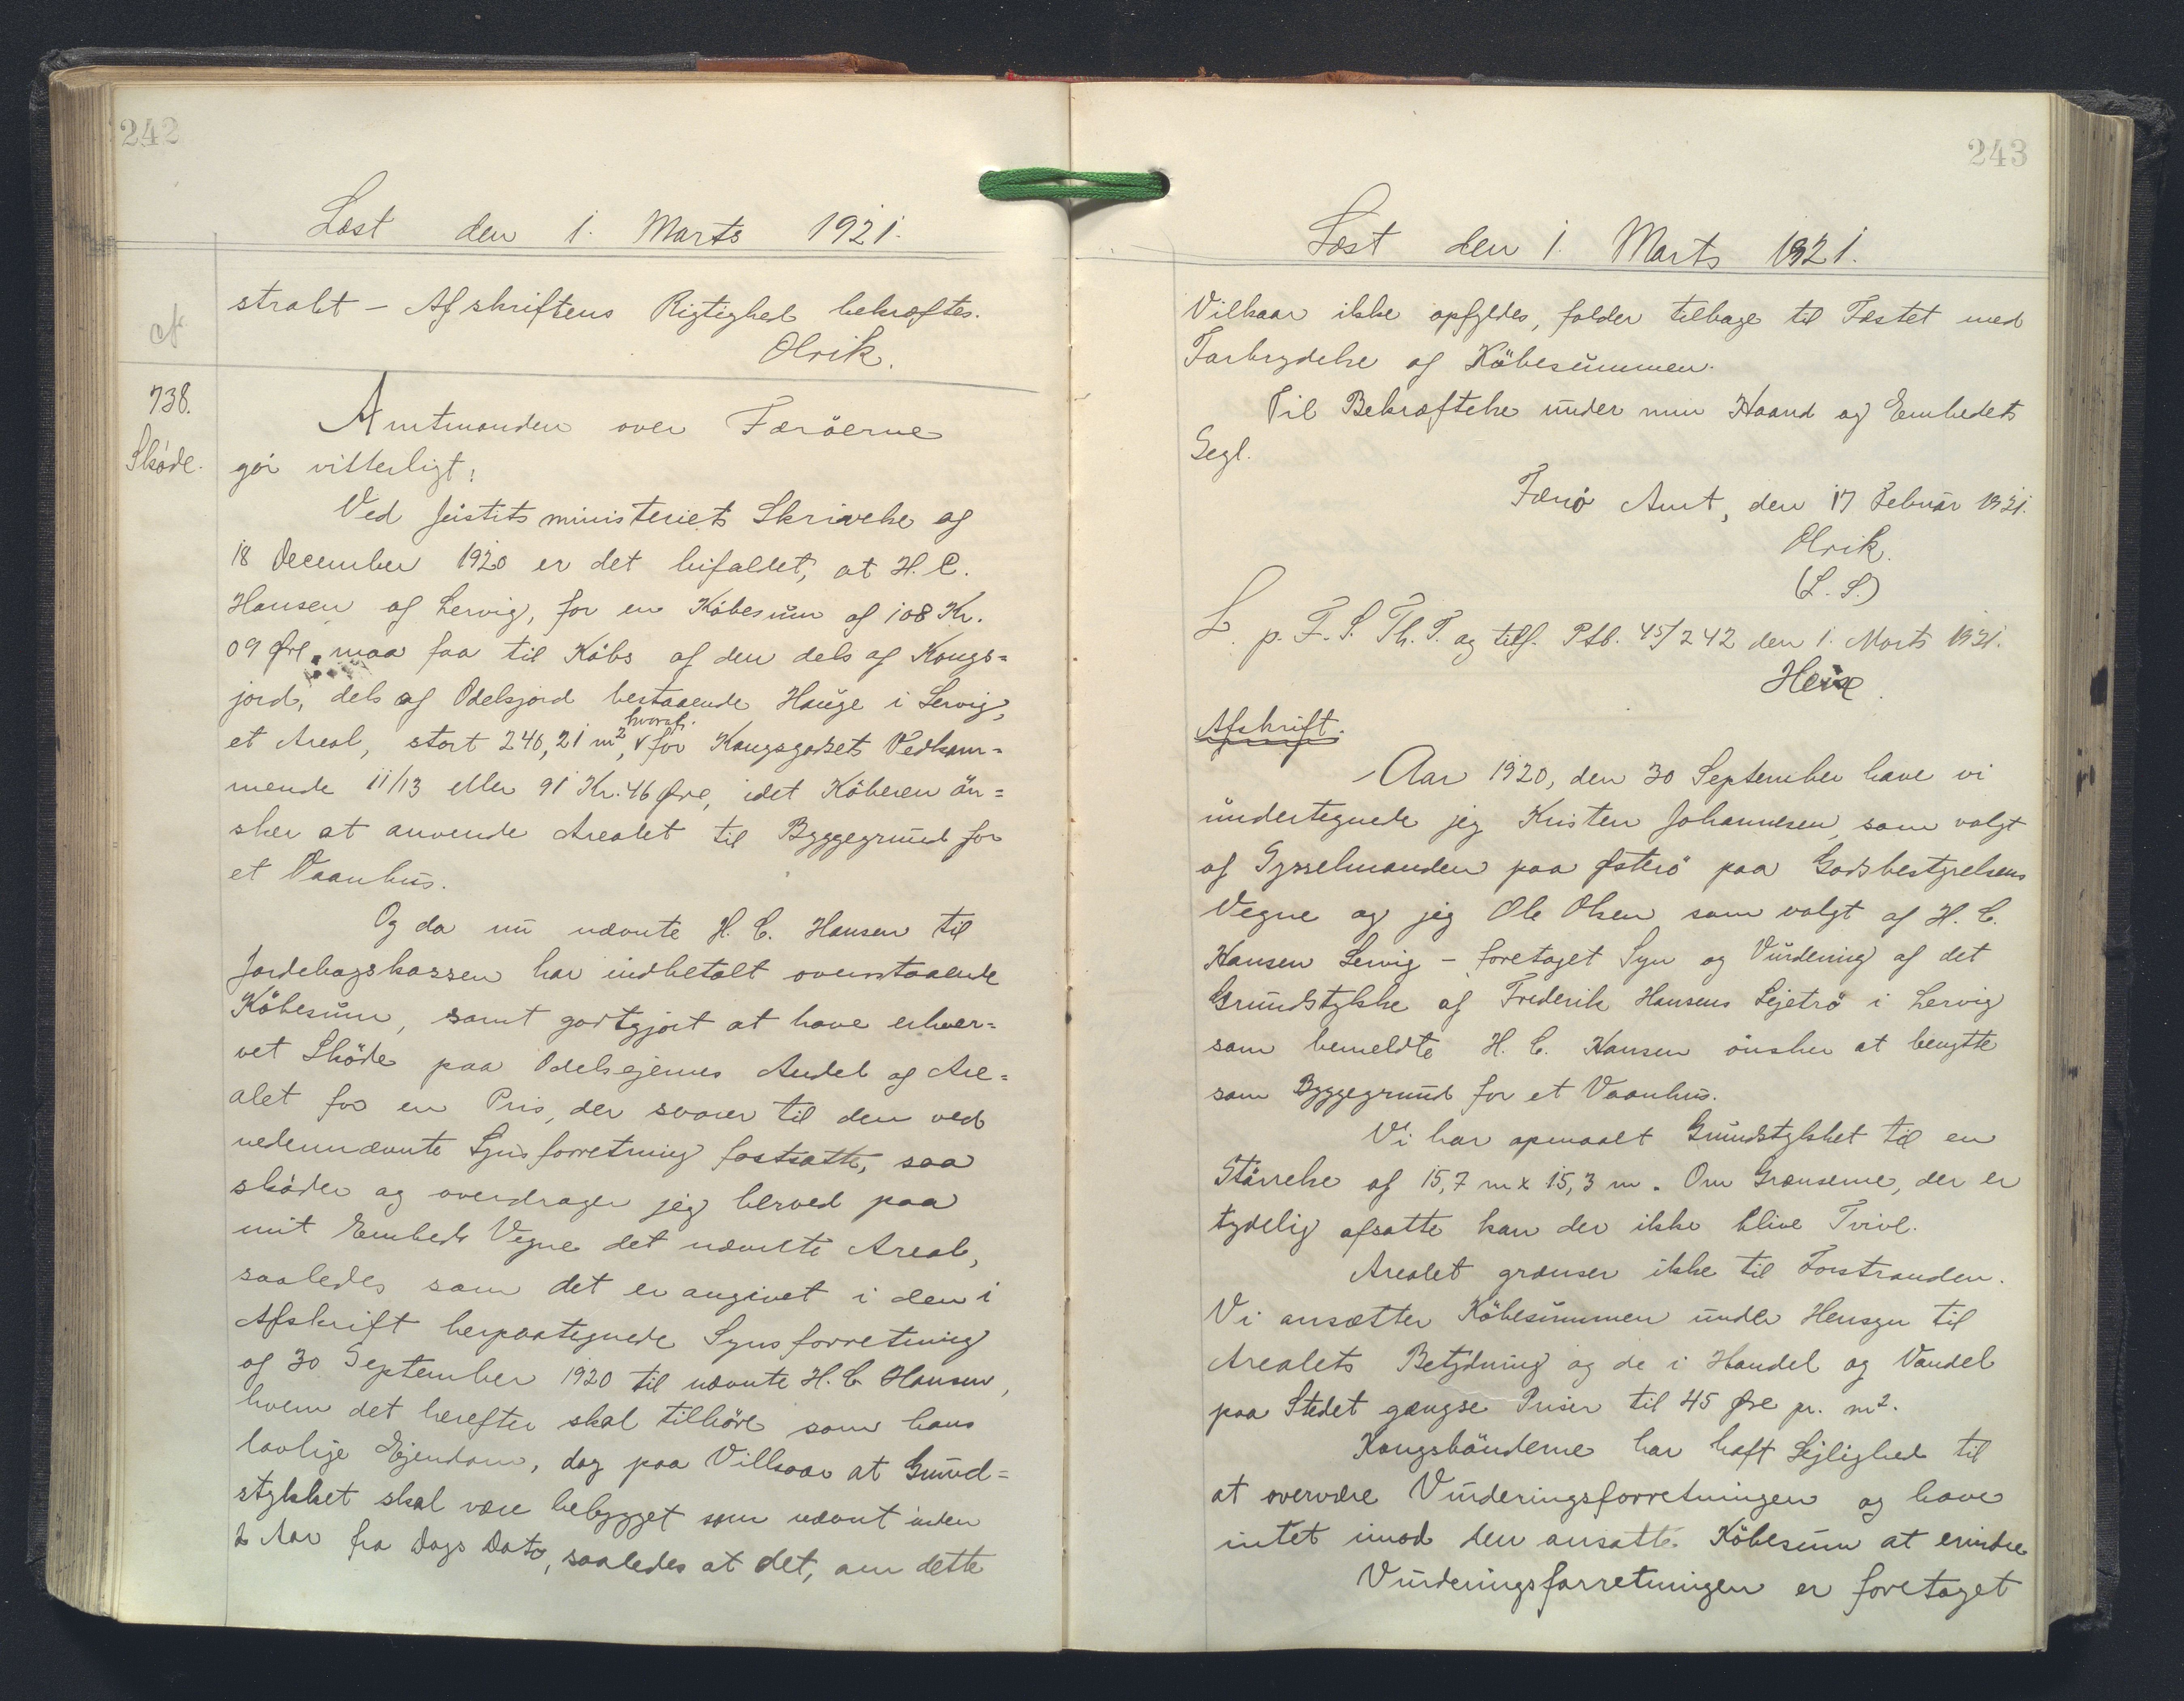 242
Læst den 1. Marts 1921.
strakt - Afskriftens Rigtighed bekræftes.
Olrik.
738.
Skøde.
Amtmanden over Færöerne
gör vitterligt:
Ved Justitsministeriets Skrivelse af
18 December 1920 er det bifaldet, at H. C.
Hansen af Lervig, for en Köbesum af 108 Kr.
09 Øre, maa faa til Köbs af den dels af Kongs=
jord, dels af Odelsjord bestaaende Hauge i Lervig,
et Areal, stort 240,21 m², hvoraf for Kongsgodsets Vedkom=
mende 11/13 eller 91 Kr. 46 Øre, idet Köberen ön=
sker at anvende Arealet til Byggegrund for
et Vaanhus.
Og da nu nævnte H. C. Hansen til
Jordebogskassen har indbetalt ovenstaaende
Köbesum, samt godtgjort at have erhver=
vet Sköde paa Odelsejernes Andel af Are=
alet for en Pris, der svarer til den ved
nedennævnte Synsforretning fastsatte, saa
sköder og overdrager jeg herved paa
mit Embeds Vegne det nævnte Areal,
saaledes som det er angivet i den i
Afskrift herpaategnede Synsforretning
af 30 September 1920 til nævnte H. C. Hansen,
hvem det herefter skal tilhöre som hans
lovlige Ejendom, dog paa Vilkaar at Grund=
stykket skal være bebygget som nævnt inden
2 Aar fra Dags Dato, saaledes at det, om dette
243
Læst den 1. Marts 1921.
Vilkaar ikke opfyldes, falder tilbage til Fæstet med
Forbrydelse af Köbesummen.
Til Bekræftelse under min Haand og Embedets
Segl.
Færö Amt, den 17 Februar 1921.
Olrik.
(L. S.)
L. p. F. S. Th. T. og tilf. Ptb. 45/242 den 1. Marts 1921.
Heise.
Afskrift.
Aar 1920, den 30 September have vi
undertegnede jeg Kristen Johannesen, som valgt
af Sysselmanden paa Østerö paa Godsbestyrelsens
Vegne og jeg Ole Olsen som valgt af H. C.
Hansen Lervig - foretaget Syn og Vurdering af det
Grundstykke af Frederik Hansens Lejetrö i Lervig
som bemeldte H. C. Hansen önsker at benytte
som Byggegrund for et Vaanhus.
Vi har opmaalt Grundstykket til en
Störrelse af 15,7 m x 15,3 m. Om Grænserne, der er
tydelig afsatte kan der ikke blive Tvivl.
Arealet grænser ikke til Forstranden.
Vi ansætter Köbesummen under Hensyn til
Arealets Betydning og de i Handel og Vandel
paa Stedet gængse Priser til 45 Øre pr. m².
Kongsbönderne har haft Lejlighed til
at overvære Vurderingsforretningen og have
intet imod den ansatte Köbesum at erindre
Vurderingsforretningen er foretaget